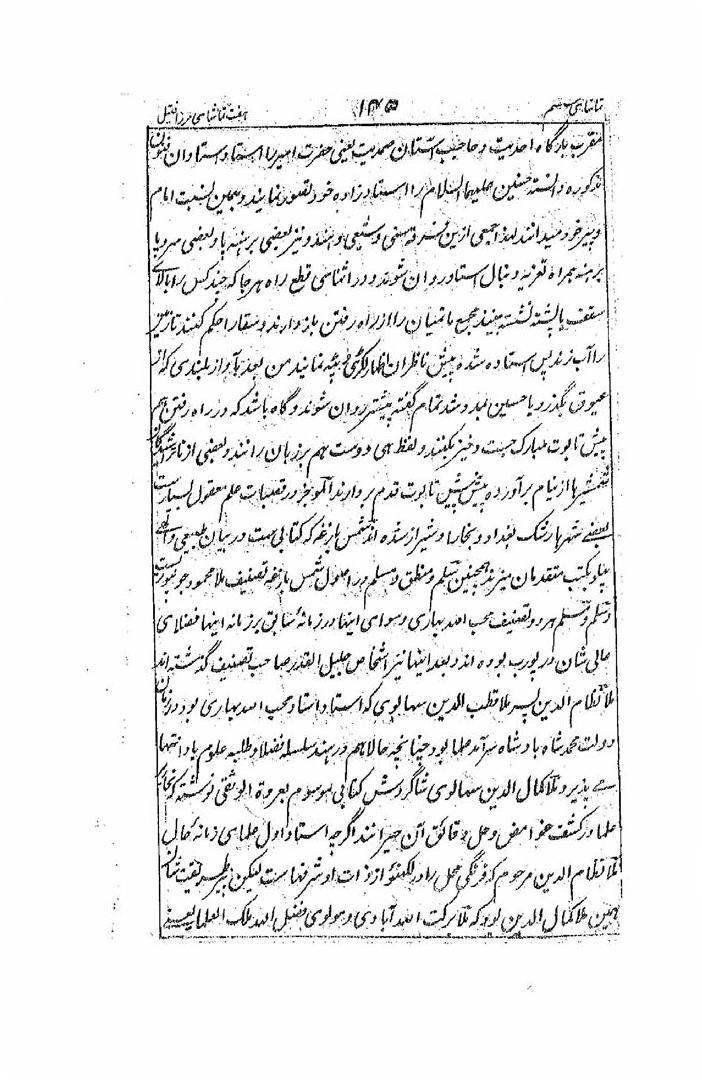 تماشای هفتم ۱۴۵ هفت تماشای مرزا قتیل
مقرب بارگاه احدیت و حاجب آستان صمدیت یعنی حضرت امیر را استاد استادان
مذکوره دانسته حسنین علیهما السلام را استاد زاده خود تصور نمایند و بهمین نسبت امام
و پیر خود میدانند لهذا جمعی ازین فرقه سنی و شیعی و هنود نیز بعضی برهنه پا و بعضی سر و پا
برهنه همراه تعزیه دنبال استاد روان شوند و در اثنای قطع راه هر جا که چند کس را بالای
سقف یا پشته نشسته بینند مجمع ماتمیان را از راه رفتن باز دارند و سقا را حکم کنند تا زمین
را آب زند پس استاده شده پیش ناظران اظهار پیشه نمایند من بعد بآواز بلندی که از
عیوق بگذرد یا حسین تمام گفته پیشتر روان شوند و گاه باشد که در راه رفتن هم
پیش تابوت مبارک جست و خیز بکنند و لفظ هی دوست هم بر زبان رانند و بعضی از
شمشیرها از نیام برآورده پیش پیش تابوت قدم بردارند در قصبات علم معقول بسیار است
بعضی شهرها رشک بغداد و بخارا و شیراز شده اند شمس بازغه که کتابی هست در بیان طبیعی و الهی
کتب متقدمان همچنین سلم و منطق و مسلم در اصول شمس بازغه تصنیف ملا محمود جونپوریست
و سلم و مسلم هر دو تصنیف محب الله بهاری و سوای اینها در زمانه سابق بر زمانه اینها فضلای
عالی شان در پورب بوده اند و بعد اینها نیز اشخاص جلیل القدر صاحب تصنیف گذشته اند
ملا نظام الدین پسر ملا قطب الدین سهالوی که استاد استاد محب الله بهاری بود در زمان
دولت محمد شاه بادشاه سرآمد علما بود چنانچه حالا هم در هند سلسله فضلا و طلبه علوم باو انتها
می پذیرد و ملا کمال الدین سهالوی شاگردش کتابی موسوم بعروة الوثقی نوشته که
علما در کشف غوامض و حل دقائق آن حیرانند اگرچه استاد اول علمای زمانه حال
ملا نظام الدین مرحوم که فرنگی محل را در لکهنؤ از ذات او شرفهاست لیکن شان
همین ملا کمال الدین بود که ملا برکت اله آبادی و مولوی فضل الله ملک العلما